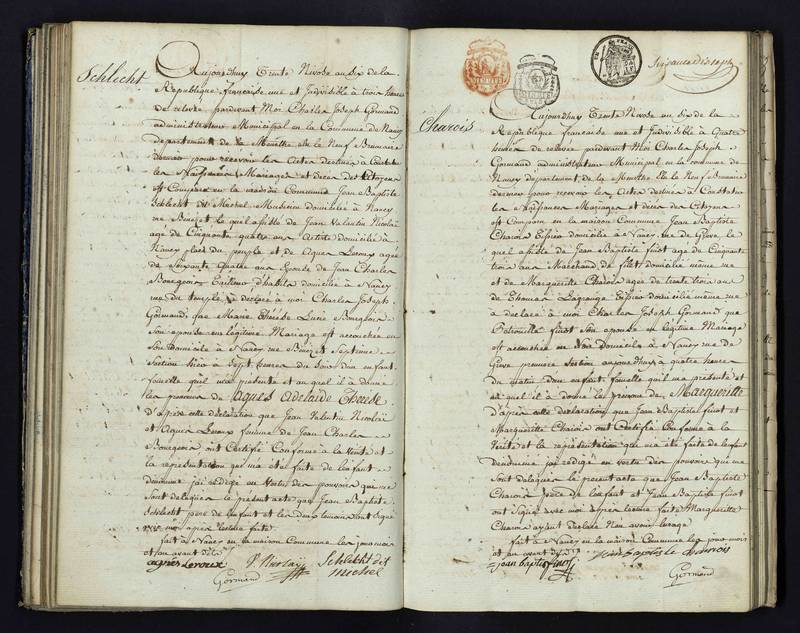 Schlecht
Aujourdhuy Trente Nivose an Six de la
République française une et Indivisible à trois heures
de relevée pardevant Moi Charles Joseph Gormand
administrateur Municipal en la Commune de Nancy
département de la Meurthe élu le Neuf Brumaire
dernier pour recevoir les Actes destinés à Constater
les Naissances Mariages et décès des Citoyens
est Comparu en la maison Commune Jean Baptiste
Schlecht dit Michel Musicien domicilié à Nancy
rue Benezet le quel assisté de Jean Valentin Nicolaï
agé de Cinquante quatre ans Artiste domicilié à
Nancy place du peuple et de Agnes Leroux agée
de Soixante Quatre ans Epouse de Jean Charles
Bourgeois Tailleur d'habits domicilié à Nancy
rue du temple, a déclaré à moi Charles Joseph
Gormand, que Marie Thérèse Lucie Bourgeois
Son épouse en légitime Mariage est accouchée en
son domicile à Nancy rue Benezet Septieme
Section hier à Sept heures du Soir d'un enfant
femelle qu'il m'a présenté et au quel il a donné
les prenoms de Agnès Adelaide Therese
D'après cette déclaration que Jean Valentin Nicolaï
et Agnes Leroux femme de Jean Charles
Bourgeois ont Certifié Conforme à la Vérité et
la représentation qui m'a été faite de l'enfant
denommé j'ai rédigé en Vertu des pouvoirs qui me
Sont delegués le présent acte que Jean Baptiste
Schlecht pere de l'enfant et les deux temoins ont Signé
avec moi apres lecture faite
fait à Nancy en la maison Commune les jour mois
et an avant dits
agnes Leroux Schlecht dit
michel
Gormand
Charois
Aujourdhuy Trente Nivose an Six de la
République française une et Indivisible à Quatre
heures de relevée pardevant Moi Charles Joseph
Gormand administrateur Municipal en la commune de
Nancy Département de la Meurthe élu le Neuf Brumaire
dernier pour recevoir les Actes destinés à Constater
les Naissances Mariages et décès des Citoyens
est Comparu en la maison Commune Jean Baptiste
Charois domicilié à Nancy rue de Grève le
quel assisté de Jean Baptiste finot agé de Cinquante
trois ans Marchand de domicilié même rue
et de Marguerite Charois agée de trente trois ans
de Thomas Lagrange domicilié même rue
a déclaré à moi Charles Joseph Gormand que
finot son épouse en légitime Mariage
est accouchée en Son Domicile à Nancy rue de
Grève premiere Section aujourdhuy à quatre heures
du matin d'un enfant femelle qu'il m'a présenté et
au quel il a donné le prenom de Marguerite
d'après cette déclaration que Jean Baptiste finot et
Marguerite Charois ont Certifié Conforme à la
Vérité et la représentation qui m'a été faite de l'enfant
denommé j'ai rédigé en vertu des pouvoirs qui me
sont delegués le présent acte que Jean Baptiste
Charois pere de l'enfant et Jean Baptiste finot
ont Signé avec moi après lecture faite Marguerite
Charois ayant déclaré Non avoir l'usage
fait à Nancy en la maison Commune les jour mois
et an avant dits
jean baptis finot
Gormand